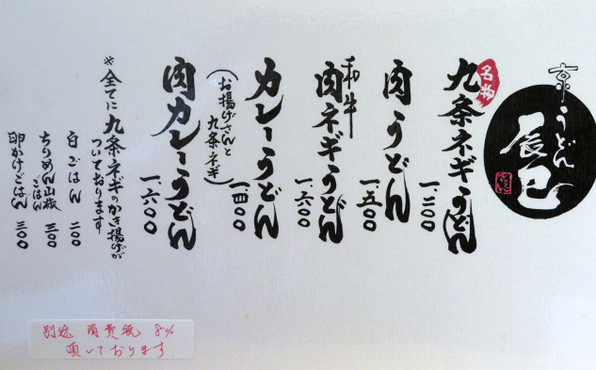 京うどん
辰巳
名物
九条ネギうどん 一、二〇〇
肉うどん 一、五〇〇
和牛
肉ネギうどん 一、六〇〇
カレーうどん 一、四〇〇
(お揚げさんと
九条ネギ)
肉カレーうどん 一、六〇〇
※全てに九条ネギのかき揚げが
ついております
白ごはん 二〇〇
ちりめん山椒
ごはん 三〇〇
卵かけごはん 三〇〇
別途 消費税 8%
頂いております。